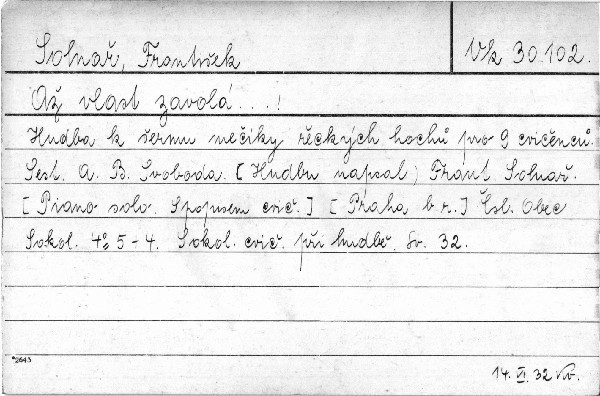 Solnař, František
Vk 30.102.
Až vlast zavolá...!
Hudba k šermu mečíky řeckých hochů pro 9 cvičenců.
Sest. A. B. Svoboda. [Hudbu napsal) Frant. Solnař.
[Piano solo. S popisem cvič.] [Praha b. r.] Čsl. Obec
Sokol. 4° 5-4. Sokol. cvič. při hudbě. Sv. 32.
*2643
14. VI. 32